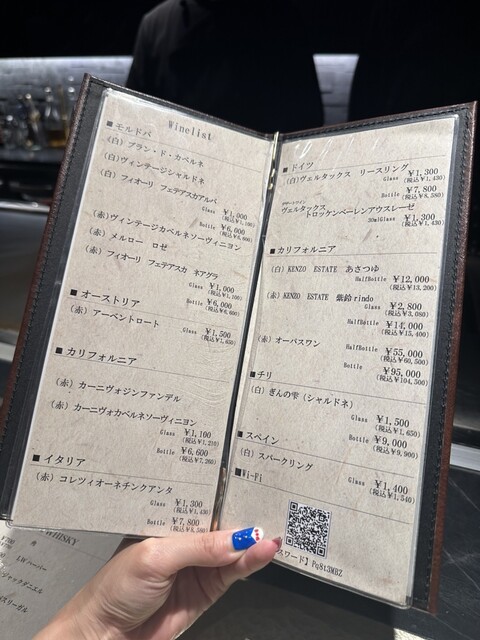 Winelist
■モルドバ
(白) ブラン・ド・カベルネ
(白)ヴィンテージシャルドネ
(白) フィオーリ フェテアスカアルバ
Glass ¥1,000
(税込¥1,100)
Bottle ¥6,000
(税込¥6,600)
(赤)ヴィンテージカベルネソーヴィニヨン
(赤) メルロー ロゼ
(赤) フィオーリ フェテアスカ ネアグラ
Glass ¥1,000
(税込¥1,100)
Bottle ¥6,000
(税込¥6,600)
■オーストリア
(赤) アーベントロート
Glass ¥1,500
(税込¥1,650)
■カリフォルニア
(赤) カーニヴォジンファンデル
(赤) カーニヴォカベルネソーヴィニヨン
Glass ¥1,100
(税込¥1,210)
Bottle ¥6,600
(税込¥7,260)
■イタリア
(赤) コレツィオーネチンクアンタ
Glass ¥1,300
(税込¥1,430)
Bottle ¥7,800
(税込¥8,580)
■ドイツ
(白)ヴェルタックス リースリング
Glass ¥1,300
(税込¥1,430)
Bottle ¥7,800
(税込¥8,580)
デザートワイン
ヴェルタックス
トロッケンベーレンアウスレーゼ
30mlGlass ¥1,300
(税込¥1,430)
■カリフォルニア
(白) KENZO ESTATE あさつゆ
HalfBottle ¥12,000
(税込¥13,200)
(赤) KENZO ESTATE 紫鈴rindo
Glass ¥2,800
(税込¥3,080)
HalfBottle ¥14,000
(税込¥15,400)
(赤) オーパスワン
HalfBottle ¥55,000
(税込¥60,500)
Bottle ¥95,000
(税込¥104,500)
■チリ
(白) ぎんの雫 (シャルドネ)
Glass ¥1,500
(税込¥1,650)
Bottle ¥9,000
(税込¥9,900)
■スペイン
(白) スパークリング
Glass ¥1,400
(税込¥1,540)
■Wi-Fi
スワード】Pq8t3MBZ
WHISKY
I.W ハーパー